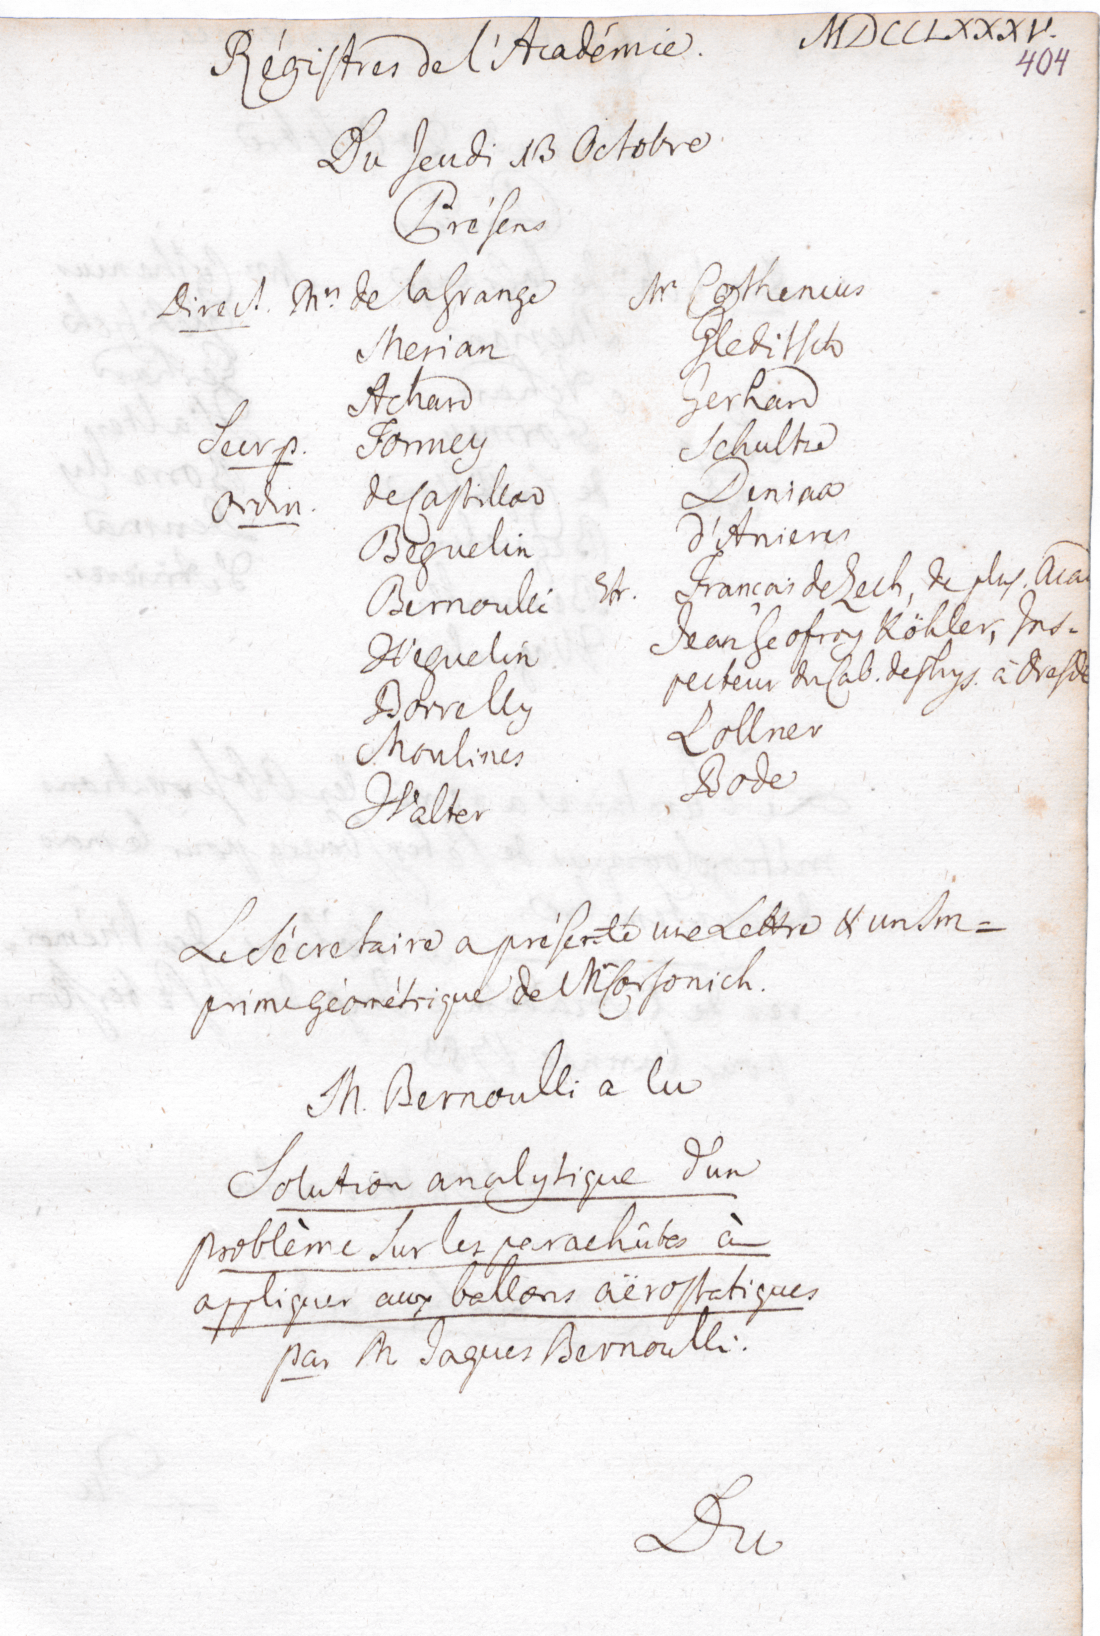 Régistres de l'Académie.
MDCCLXXXV.
404
Du Jeudi 13 Octobre
Présens
Direct. Mrs de la Grange
Merian
Achard
Secr. p. Formey
Ordin. de Castillon
Beguelin
Bernoulli
Weguelin
Borrelly
Moulines
Walter
Mr Cothenius
Gleditsch
Gerhard
Schultze
Denina
d'Anieres
Etr. François de Zech, de plus. Acad
Jean Geofroy Köhler, Ins-
pecteur du Cab. de Phys. à Dresde
Lollner
Bode
Le Sécretaire a présenté une Lettre & un Im=
primé géométrique de Mr Corsonich.
M. Bernoulli a lu
Solution analytique d'un
problème sur les parachûtes à
appliquer aux ballons aërostatiques
par M Jaques Bernoulli.
Du